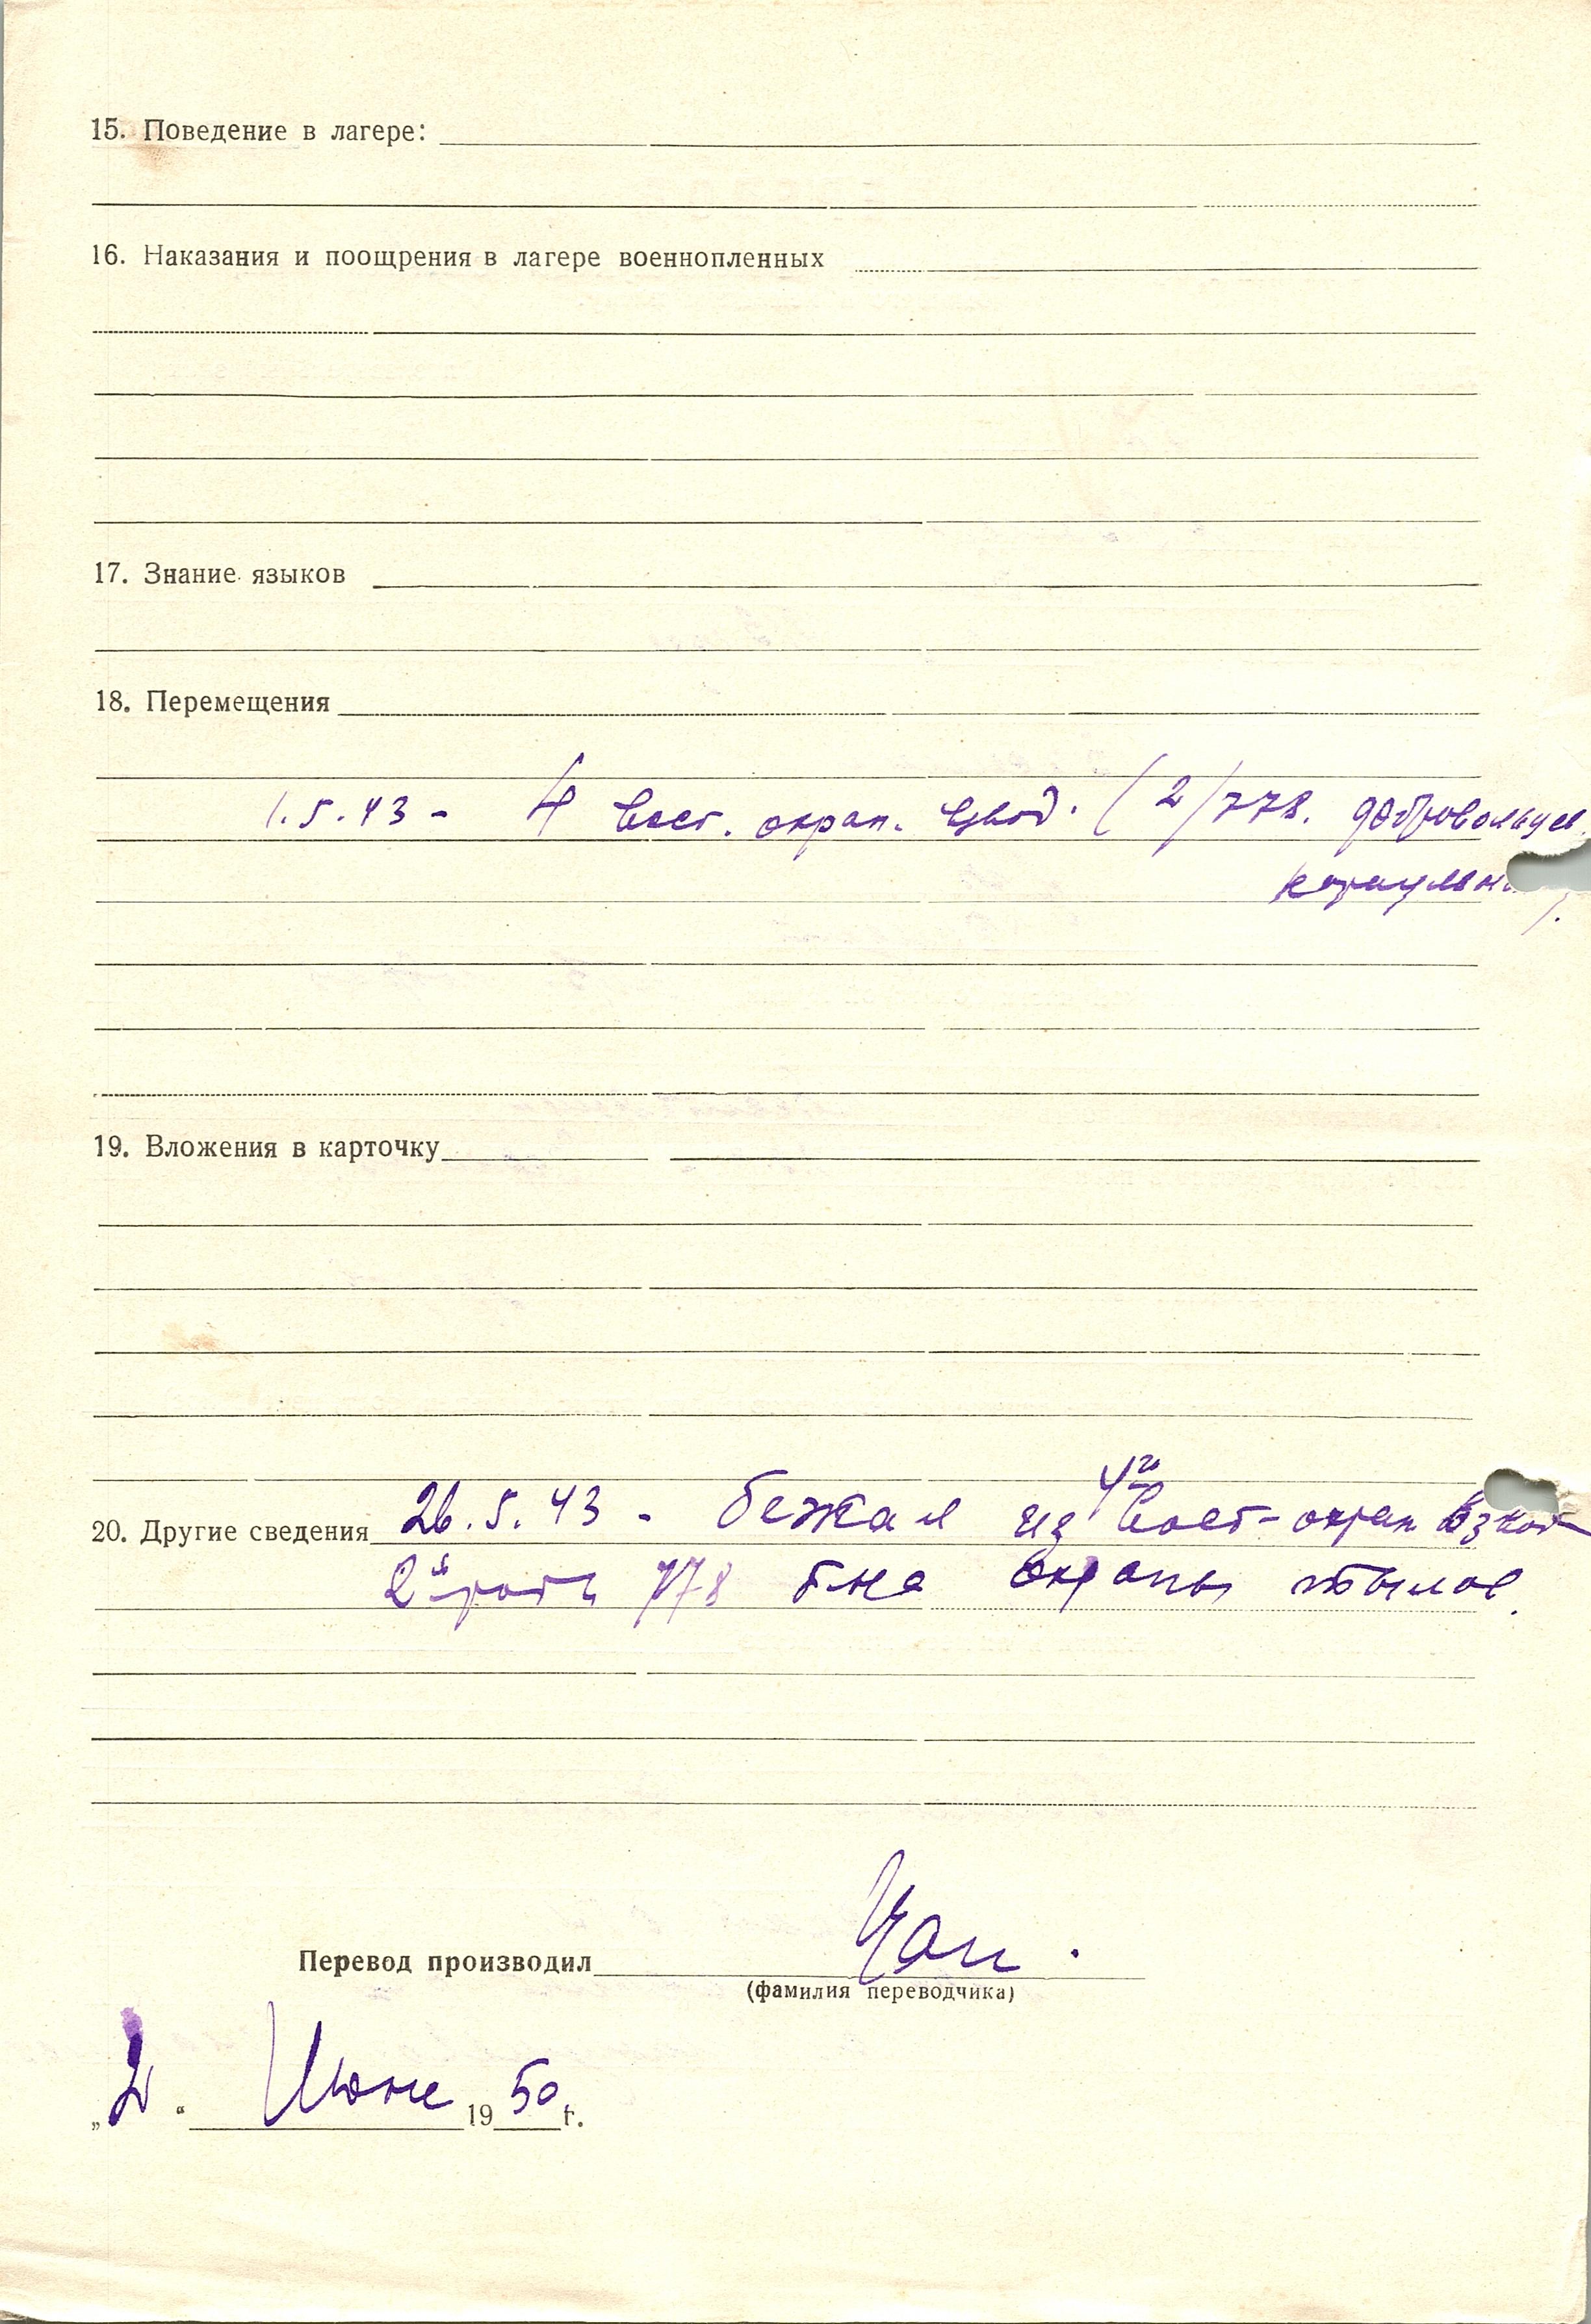 15. Поведение в лагере:
16. Наказания и поощрения в лагере военнопленных
17. Знание языков
18. Перемещения
1.5.43 - 4 вост. охран. взвод. (2/778. добровольцев.
караульн
).
19. Вложения в карточку
4го
20. Другие сведения 26.5.43 - бежал из вост-охран взвода
2й роты 778 б-на охраны тылов.
Перевод производил
(фамилия переводчика)
„2“ Июня 1950 г.